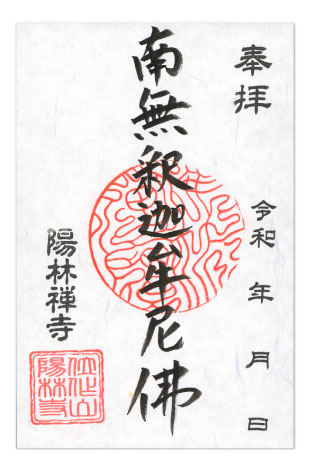 奉拝
令和 年 月 日
南無釈迦牟尼佛
陽林禅寺
陽林寺